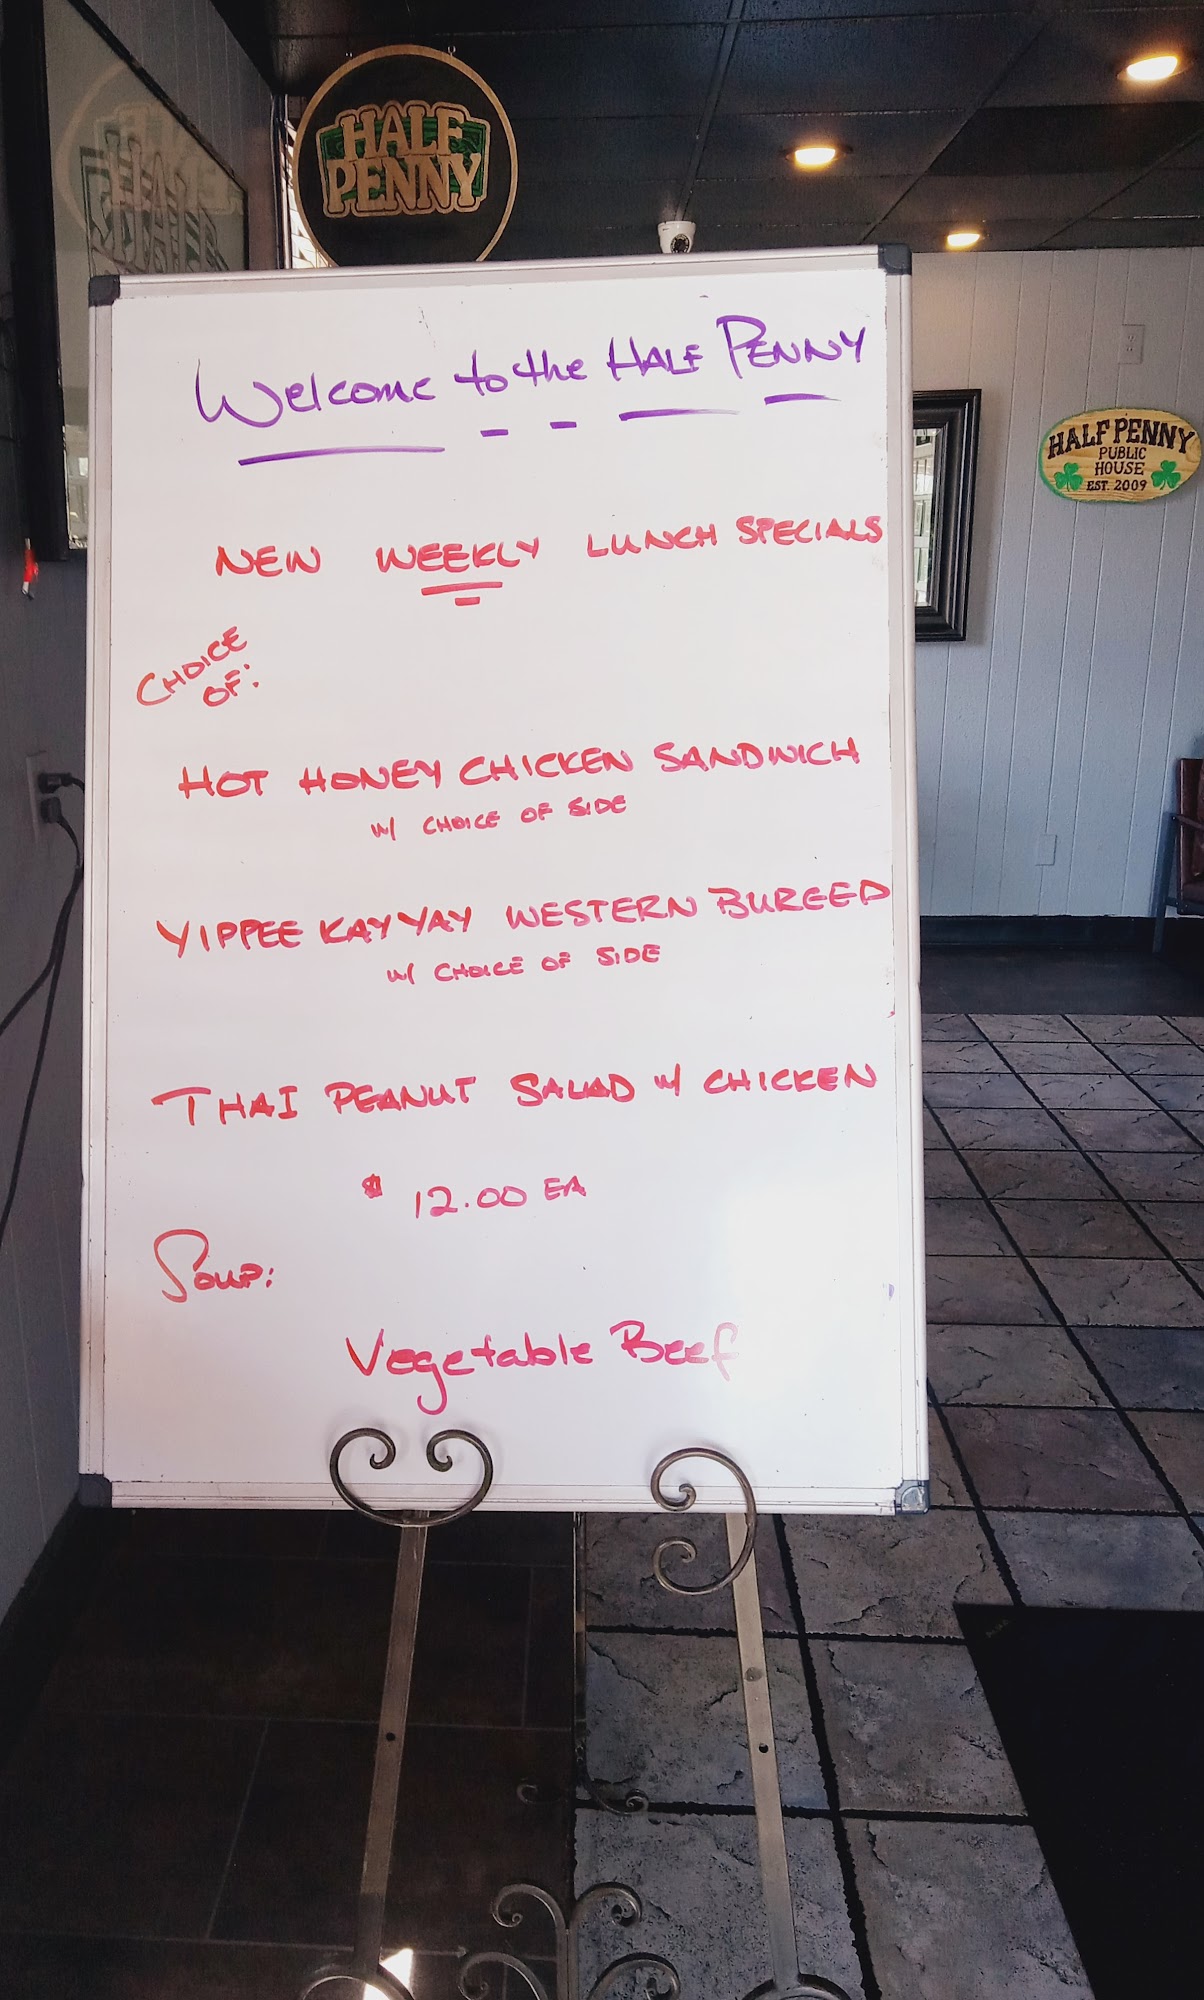 HALF
PENNY
Welcome to the HALF PENNY
HALF PENNY
PUBLIC
HOUSE
EST. 2009
NEW WEEKLY LUNCH SPECIALS
CHOICE
OF:
HOT HONEY CHICKEN SANDWICH
w/ CHOICE OF SIDE
YIPPEE KAY YAY WESTERN BURGED
w/ CHOICE OF SIDE
THAI PEANUT SALAD w/ CHICKEN
$ 12.00 EA
Soup:
Vegetable Beef